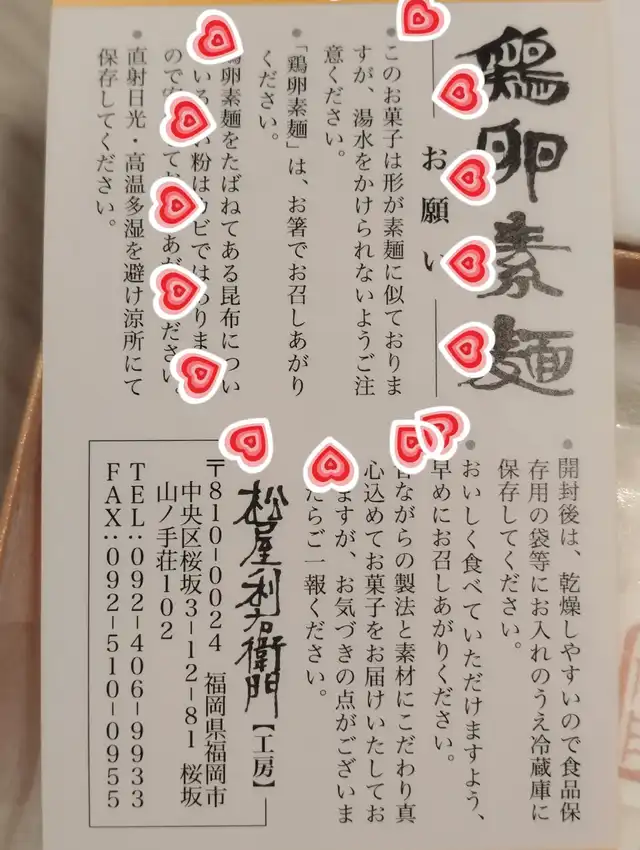 鶏卵素麺
お願い
・このお菓子は形が素麺に似ておりま
すが、湯水をかけられないようご注
意ください。
・「鶏卵素麺」は、お箸でお召しあがり
ください。
鶏卵素麺をたばねてある昆布につい
いる 粉はカビではありま
ので おあ ださい。
・直射日光・高温多湿を避け涼所にて
保存してください。
・開封後は、乾燥しやすいので食品保
存用の袋等にお入れのうえ冷蔵庫に
保存してください。
・おいしく食べていただけますよう、
早めにお召しあがりください。
ながらの製法と素材にこだわり真
心込めてお菓子をお届けいたしてお
ますが、お気づきの点がございま
たらご一報ください。
松屋利右衛門【工房】
〒810-0024 福岡県福岡市
中央区桜坂3-12-81 桜坂
山ノ手荘102
TEL:092-406-9933
FAX:092-510-0955